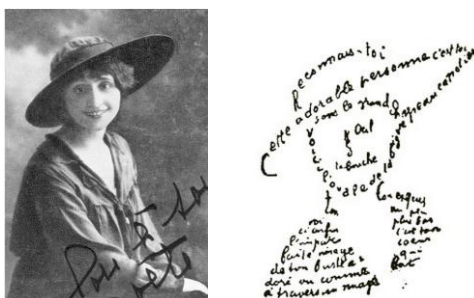 Reconnais-toi
Cette adorable personne c'est toi
sous le grand chapeau canotier
Oeil
la bouche
Voici l'ovale de ta figure
Ton cou exquis
Voici enfin
l'imparfaite image
de ton buste a
doré vu comme
à travers un nuage
un peu
plus bas
c'est ton
coeur
qui
bat